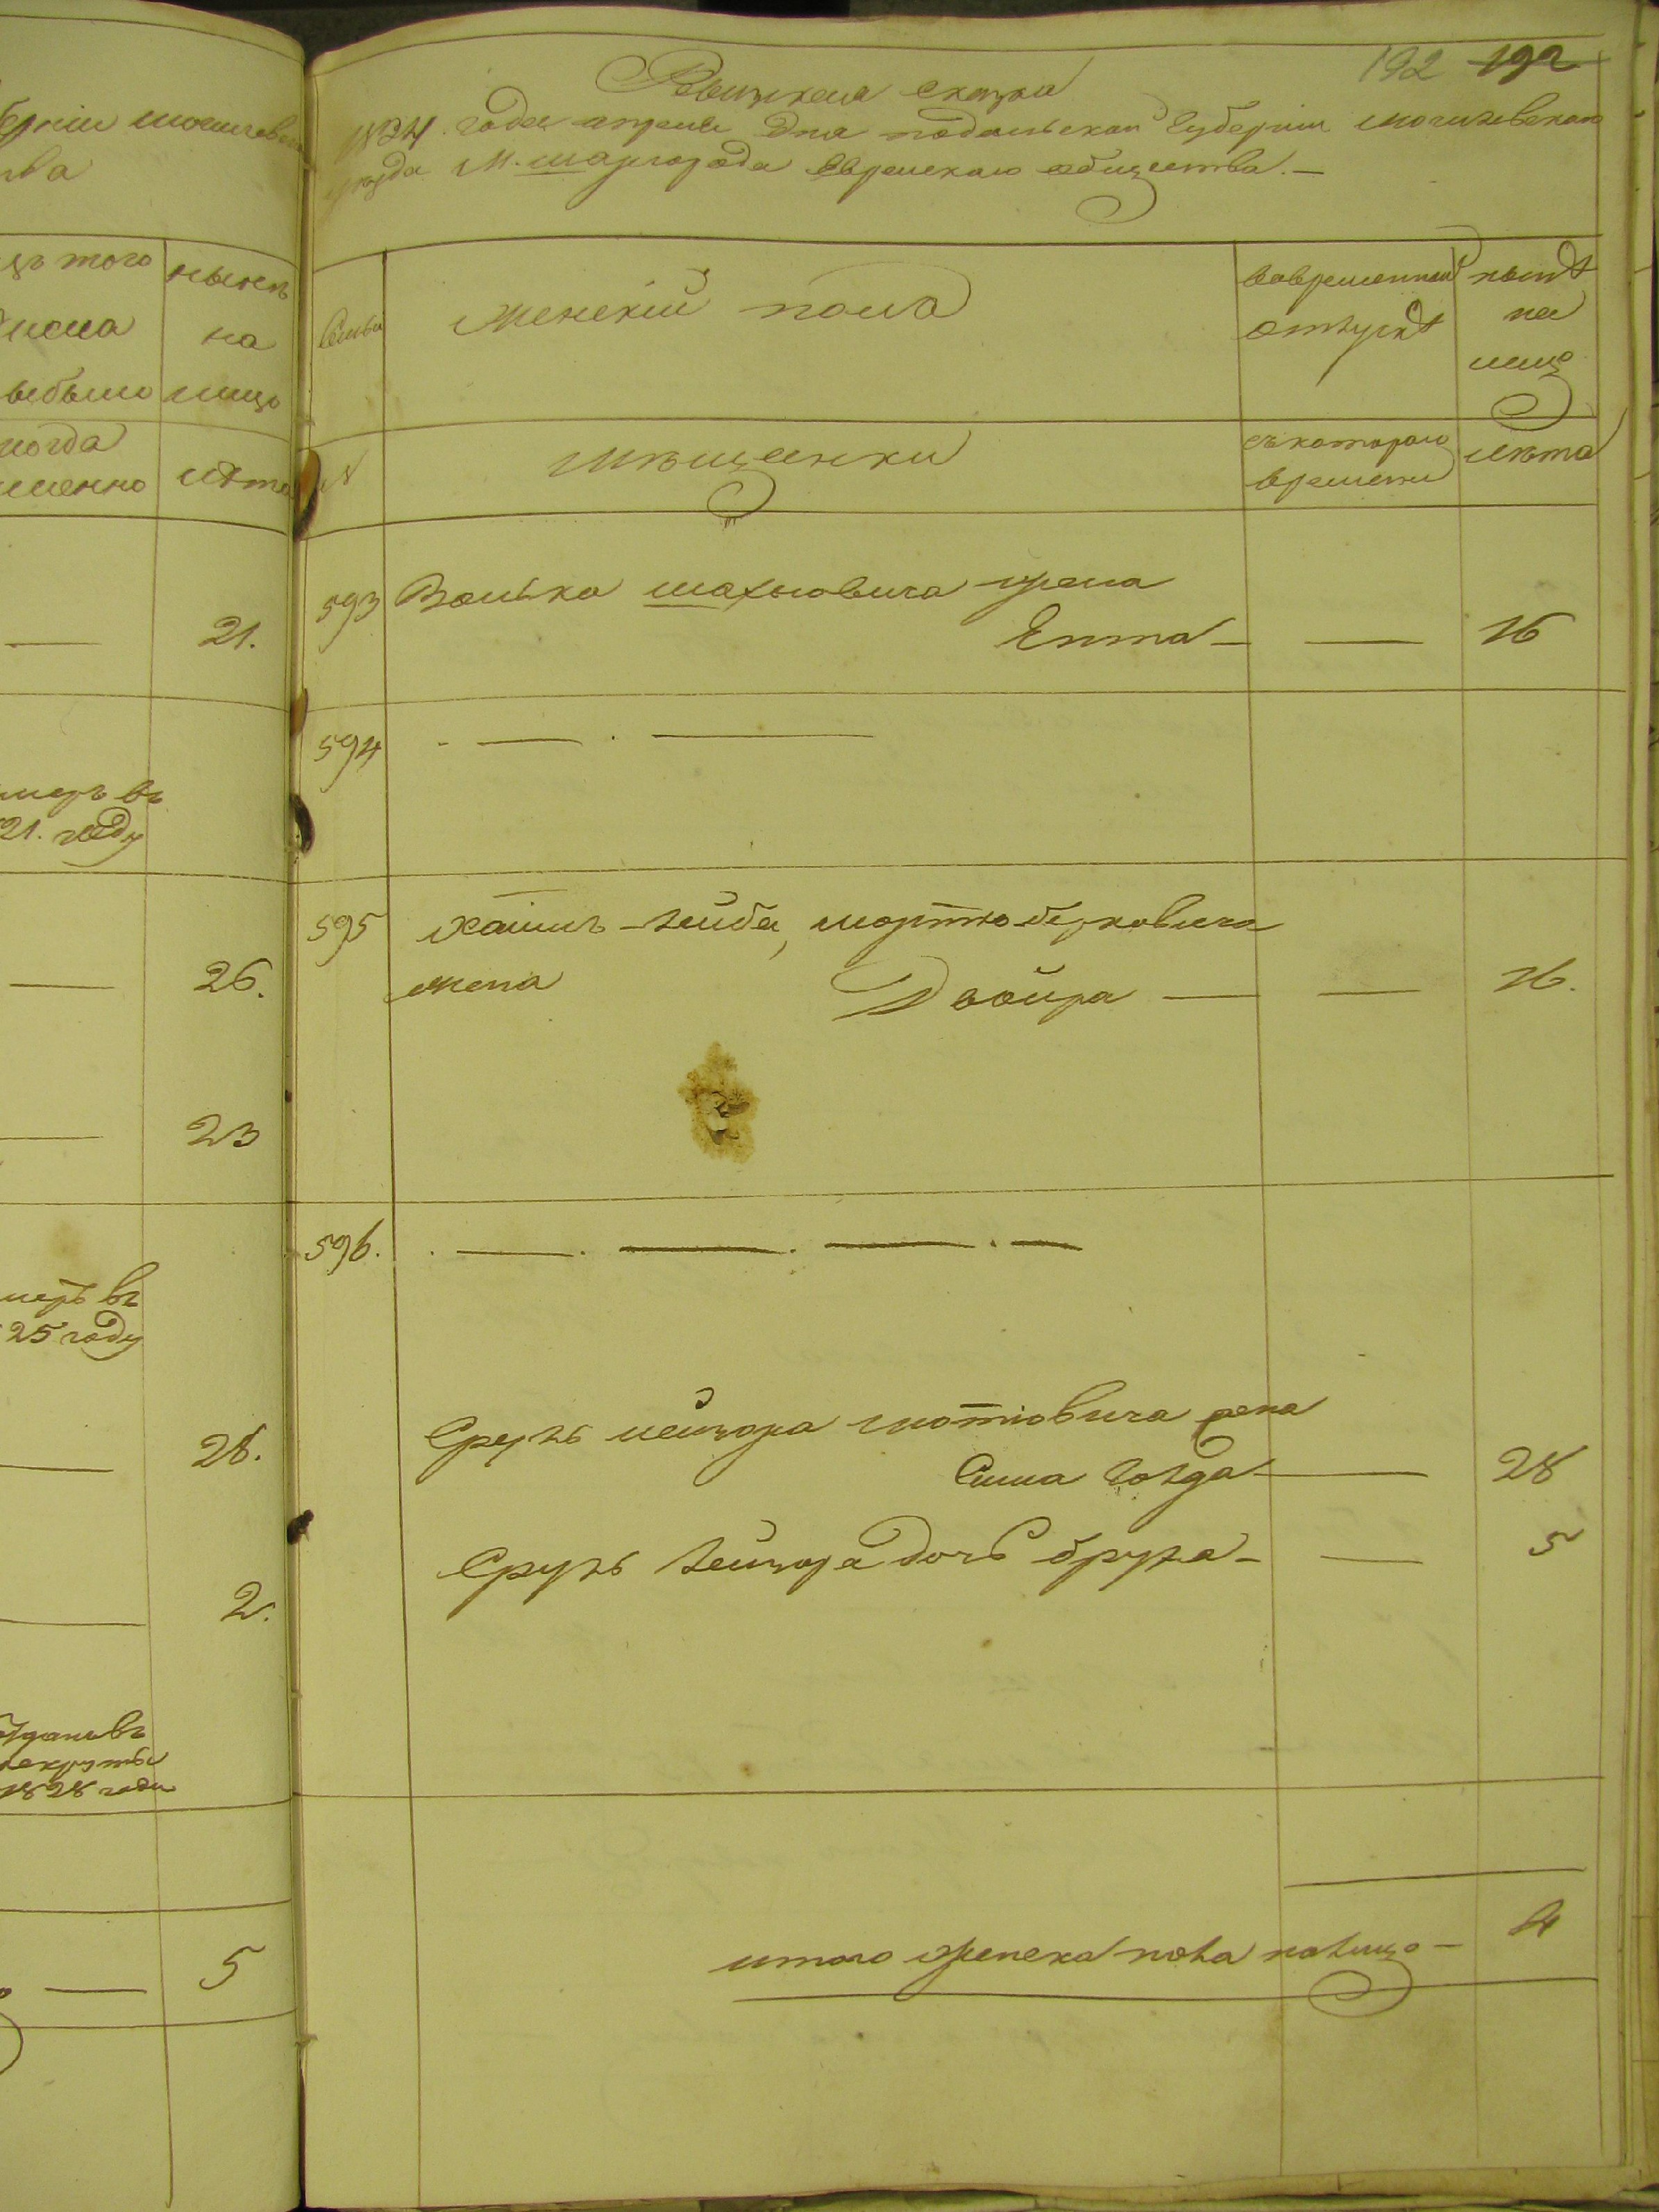 берніи могилев
тва
того
нынѣ
на
выбыло
лицо
когда
именно
лѣта
21.
умеръ въ
21. году
26.
23
умеръ въ
25 году
28.
2.
отданъ въ
рекруты
1828 года
5
192 192
Ревизская сказка
1834. года апреля дня подольской Губерніи могилевскаго
уѣзда М. шаргорода Еврейскаго общества. —
Семьи
женскій полъ
вовременной
отлучкѣ
нынѣ
на
лицо
№
мѣщанки
съ котораго
времени
лѣта
593 Волька шахновича жена
Ента — — 16
594 - — . —
595 Хаимъ-лейба, мортко-берковича
жена Двойра — — 16.
596. . — . — . — . —
Сруль лейзора мотіовича жена
Сима Голда — 28
Сруль лейзора дочь брука — — 5
итого женска пола налицо — 4